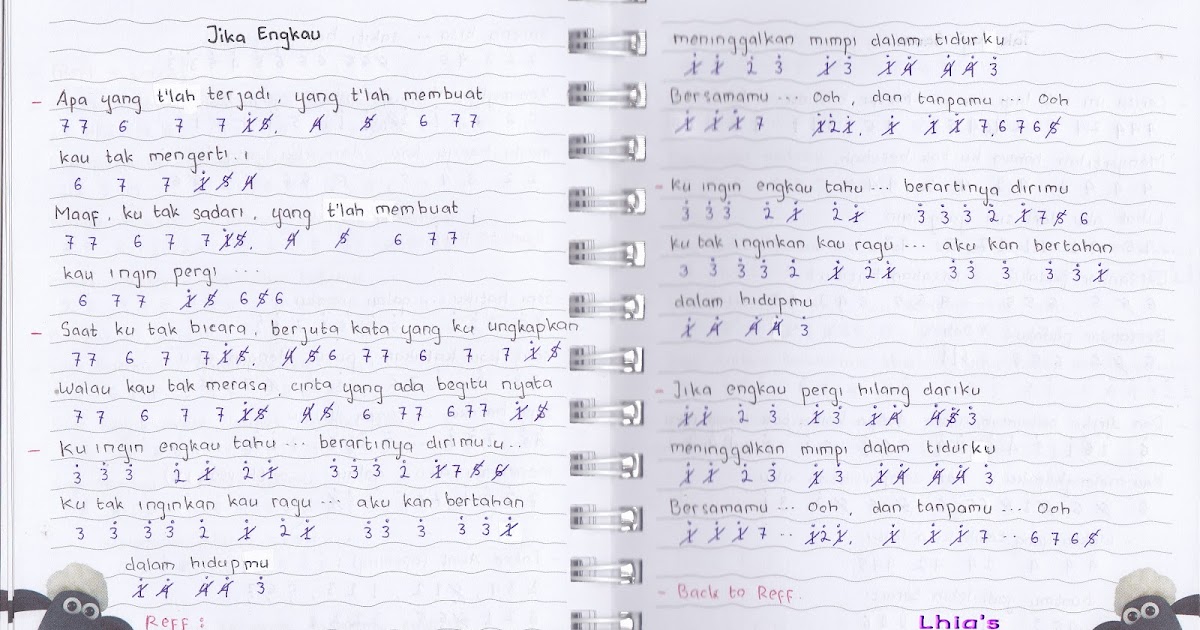 Jika Engkau
- Apa yang t'lah terjadi, yang t'lah membuat
7 7 6 7 7 1 5. 4 5 6 7 7
kau tak mengerti..
6 7 7 1 5 4
Maaf, ku tak sadari, yang t'lah membuat
7 7 6 7 7 1 5. 4 5 6 7 7
kau ingin pergi ...
6 7 7 1 5 6 5 6
- Saat ku tak bicara, berjuta kata yang ku ungkapkan
7 7 6 7 7 1 5. 4 5 6 7 7 6 7 7 1 5
Walau kau tak merasa, cinta yang ada begitu nyata
7 7 6 7 7 1 5 4 5 6 7 7 6 7 7 1 5
- Ku ingin engkau tahu ... berartinya dirimu.u..
3 3 3 2 1 2 1 3 3 3 2 1 7 5 6
Ku tak inginkan kau ragu ... aku kan bertahan
3 3 3 3 2 1 2 1 3 3 3 3 3 1
dalam hidupmu
1 4 4 4 3
Reff :
meninggalkan mimpi dalam tidurku
1 1 2 3 1 3 1 4 4 4 3
Bersamamu ... Ooh, dan tanpamu ... Ooh
1 1 1 7 1 2 1. 1 1 1 7.6 7 6 5
- Ku ingin engkau tahu ... berartinya dirimu
3 3 3 2 1 2 1 3 3 3 2 1 7 5 6
ku tak inginkan kau ragu ... aku kan bertahan
3 3 3 3 2 1 2 1 3 3 3 3 3 1
dalam hidupmu
1 4 4 4 3
- Jika engkau pergi hilang dariku
1 1 2 3 1 3 1 4 4 5 3
meninggalkan mimpi dalam tidurku
1 1 2 3 1 3 1 4 4 4 3
Bersamamu ... Ooh, dan tanpamu ... Ooh
1 1 1 7 .. 1 2 1. 1 1 1 7 .. 6 7 6 5
- Back to Reff.
Lhia's